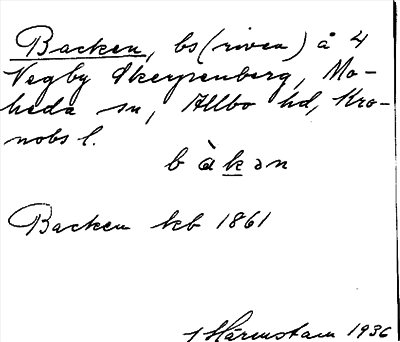 Backen, bs (riven) å 4
Vegby Skeppenberg, Mo-
heda sn, Allbo hd, Kro-
nobs l.
b à k ə n
Backen kb 1861
Härenstam 1936